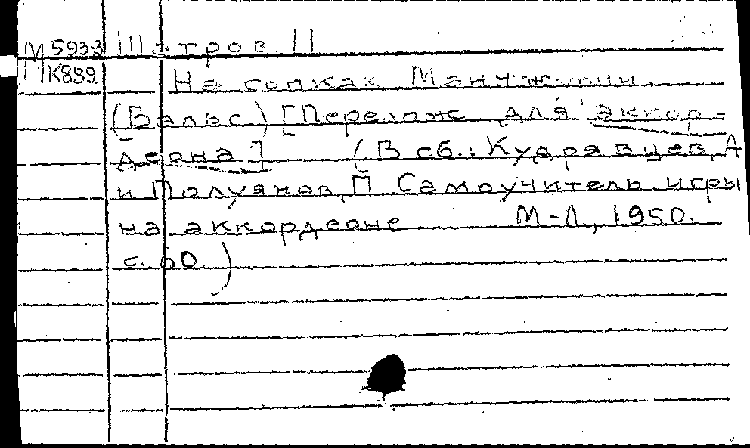 М 5933 Шатров П
К889 На сопках Манчжурии.
(Вальс) [Перелож. для аккор-
деона] (В сб.: Кудрявцев, А
и Полуянов, П Самоучитель игры
на аккордеоне М-Л, 1950.
с. 60.)